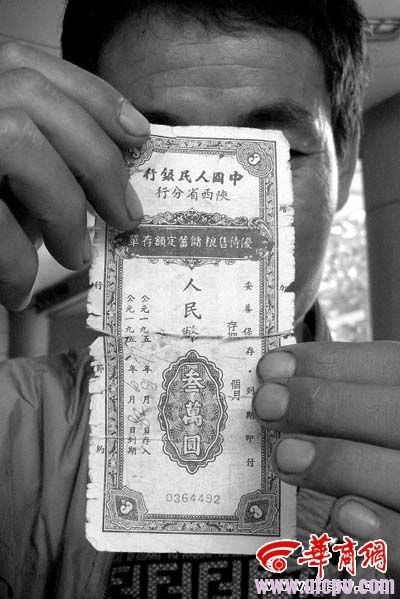 中國人民銀行
陝西省分行
優待售糧儲蓄定額存單
妥善保存·到期即付
存期 個月
人民幣
叁萬圓
公元一九五 年 月 日存入
公元一九五 年 月 日到期
增 加
行 節 約
0364492
華商網